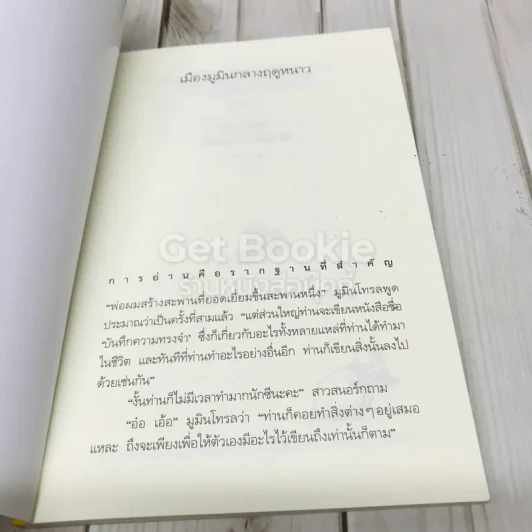 เมืองมูมินกลางฤดูหนาว
Get Bookie
การอ่านคือรากฐานที่สำคัญ
ร้านหนังสือมือสี่
"พ่อผมสร้างสะพานที่ยอดเยี่ยมขึ้นสะพานหนึ่ง" มูมินโทรลพูด
ประมาณว่าเป็นครั้งที่สามแล้ว "แต่ส่วนใหญ่ท่านจะเขียนหนังสือชื่อ
'บันทึกความทรงจำ' ซึ่งก็เกี่ยวกับอะไรทั้งหลายแหล่ที่ท่านได้ทำมา
ในชีวิต และทันทีที่ท่านทำอะไรอย่างอื่นอีก ท่านก็เขียนสิ่งนั้นลงไป
ด้วยเช่นกัน"
"งั้นท่านก็ไม่มีเวลาทำมากนักซีนะคะ" สาวสนอร์กถาม
"อ๋อ เอ้อ" มูมินโทรลว่า "ท่านก็คอยทำสิ่งต่างๆ อยู่เสมอ
แหละ ถึงจะเพียงเพื่อให้ตัวเองมีอะไรไว้เขียนถึงเท่านั้นก็ตาม"